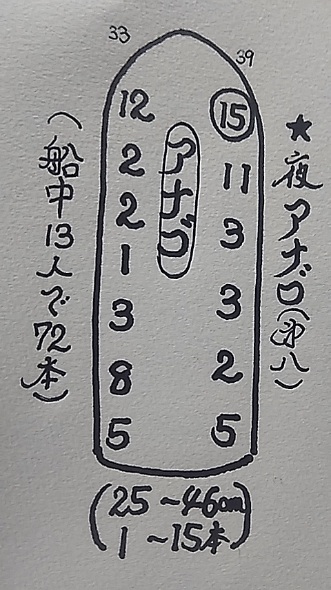 33
39
★夜アナゴ(㐧八)
アナゴ
12 15
2 11
2 3
1 3
3
8 2
5 5
(船中13人で72本)
(25～46cm
1～15本)